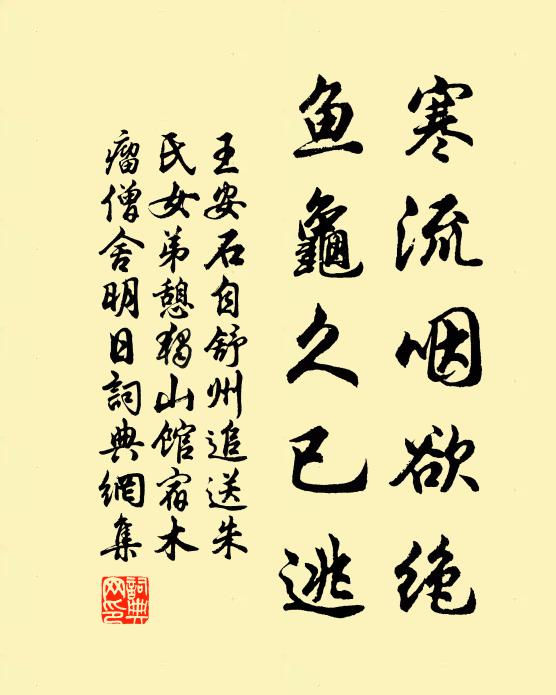 寒流咽欲绝
鱼龜久已逃
王安石自舒州追送朱
氏女弟憩獨山館宿木
瘤僧舍明日詞典網集
詞典